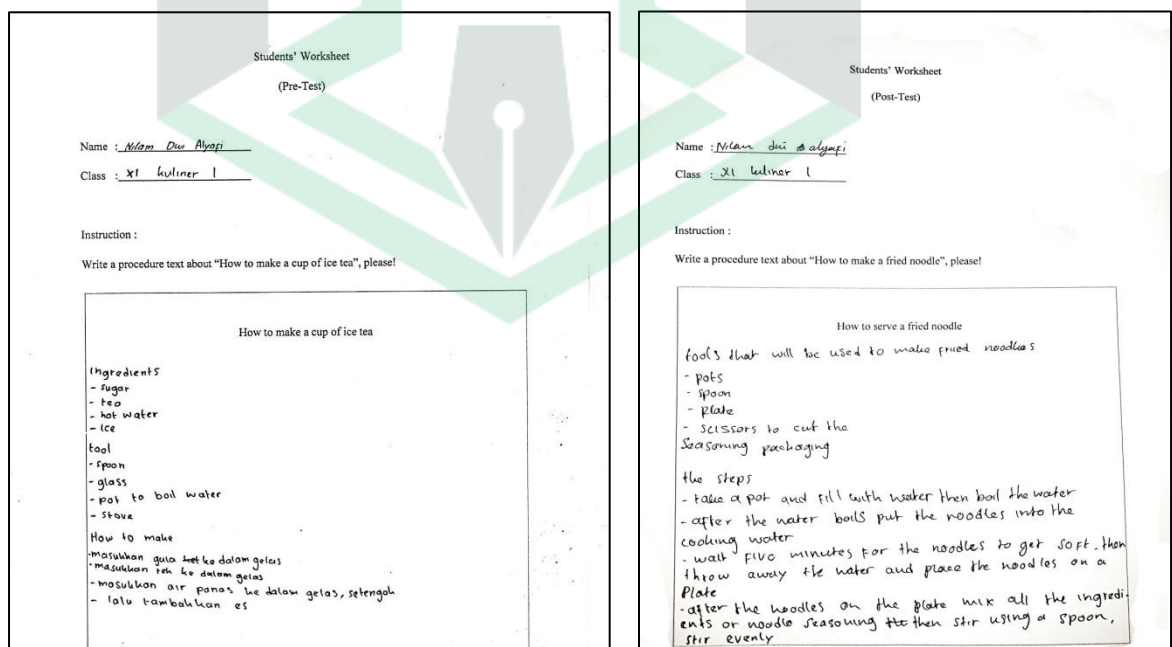 Students' Worksheet
(Pre-Test)
Name : Nilam Dwi Alyafi
Class : XI kuliner 1
Instruction :
Write a procedure text about “How to make a cup of ice tea”, please!
How to make a cup of ice tea
Ingredients
- sugar
- tea
- hot water
- ice
tool
- spoon
- glass
- pot to boil water
- stove
How to make
-masukkan gula ke dalam gelas
-masukkan teh ke dalam gelas
-masukkan air panas ke dalam gelas, setengah
- lalu tambahkan es
Students' Worksheet
(Post-Test)
Name : Nilam dwi alyafi
Class : XI kuliner 1
Instruction :
Write a procedure text about “How to make a fried noodle”, please!
How to serve a fried noodle
tools that will be used to make fried noodles
- pots
- spoon
- plate
- scissors to cut the
Seasoning packaging
the steps
- take a pot and fill with water then boil the water
- after the water boils put the noodles into the
cooking water
- wait five minutes for the noodles to get soft. then
throw away the water and place the noodles on a
Plate
-after the noodles on the plate mix all the ingredi-
ents or noodle seasoning then stir using a spoon,
stir evenly